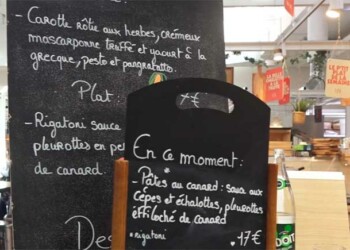 - Carotte rôtie aux herbes, crémeux
mascarpone truffé et yaourt à la
grecque, pesto et pangrattato.
Plat
- Rigatoni sauce
pleurotes en pe
de canard
Des
17€
En ce moment:
- Pâtes au canard: sauce aux
Cèpes et échalottes, pleurottes
effiloché de canard
*rigatoni
17€